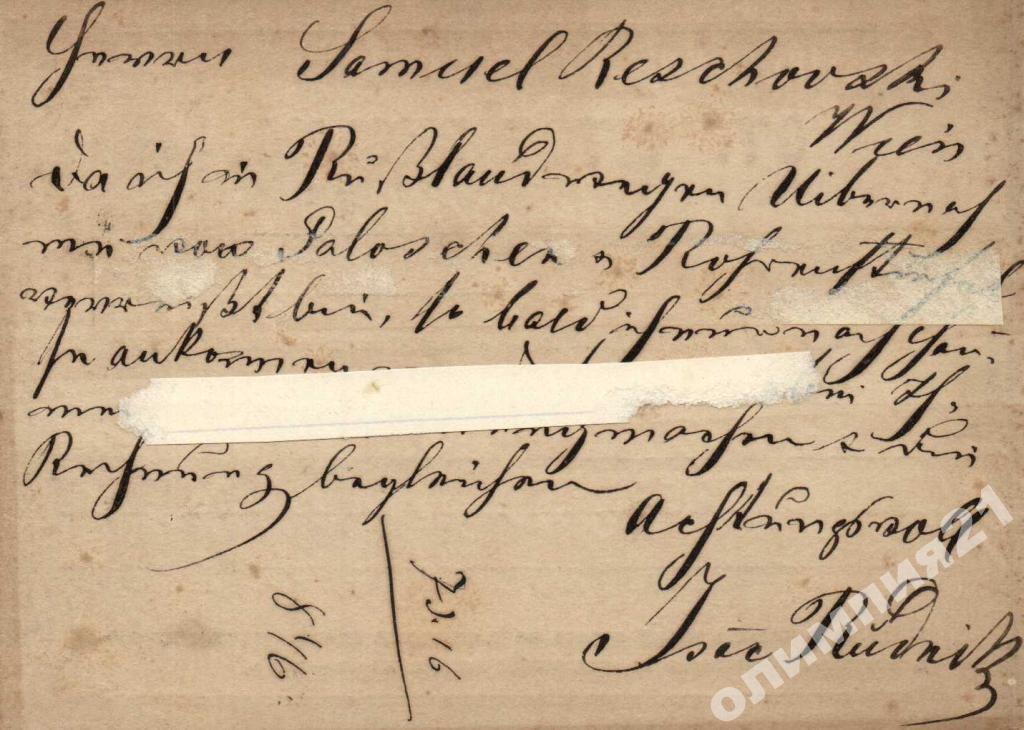 Herrn Samuel Reschovski
Wien
Da ich in Rußland wegen Uibernah
me von Galoschen & Rohrenstiefel
verreißt bin, so bald ich nur nach Hau-
se ankommen
me in Ih.
machen & die
Rechnung begleichen
Achtungsvoll
Isaac Rudnik
7.5.16
8 4/6
ОЛИМПИЯ21